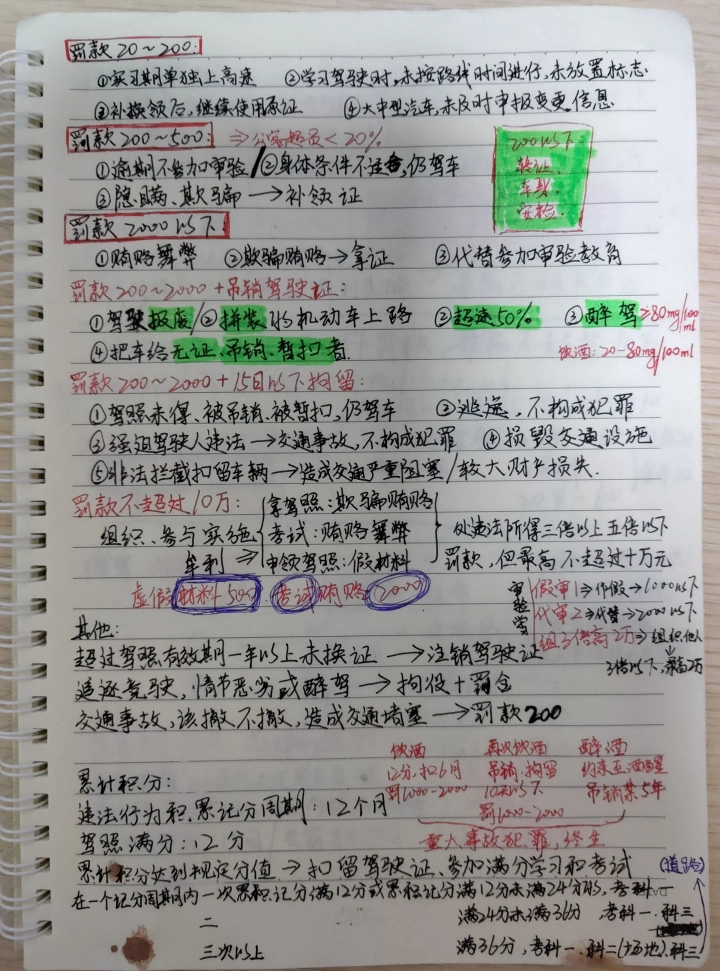 罚款20~200:
①实习期单独上高速 ②学习驾驶时,未按路线时间进行,未放置标志
③补换领后,继续使用原证 ④大中型汽车,未及时申报变更信息
罚款200~500: ⇒公客超员<20%
①逾期不参加审验/②身体条件不适合,仍驾车
③隐瞒、欺骗→补领证
200以下
转证.
车身.
安检.
罚款2000以下
①贿赂舞弊 ②欺骗贿赂→拿证 ③代替参加审验教育
罚款200~2000+吊销驾驶证:
①驾驶报废/②拼装的机动车上路 ②超速50% ③醉驾≥80mg/100ml
④把车给无证、吊销、暂扣者. 饮酒:20-80mg/100ml
罚款200~2000+15日以下拘留:
①驾照未得、被吊销、被暂扣,仍驾车 ②逃逸,不构成犯罪
③强迫驾驶人违法→交通事故,不构成犯罪 ④损毁交通设施
⑤非法拦截扣留车辆→造成交通严重阻塞/较大财产损失.
罚款不超过10万:
组织、参与实施
牟利⇒
拿驾照:欺骗贿赂
考试:贿赂舞弊
申领驾照:假材料
处违法所得三倍以上五倍以下
罚款,但最高不超过十万元
虚假材料500 考试贿赂2000
审验学
假审1⇒作假→1000以下
代审2⇒代替→2000以下
组3倍高2万⇒组织他人
↓
3倍以下,最高2万
其他:
超过驾照有效期一年以上未换证→注销驾驶证
追逐竞驶,情节恶劣或醉驾→拘役+罚金
交通事故,该撤不撤,造成交通堵塞→罚款200
饮酒 再次饮酒 醉酒
12分,扣6月 吊销、拘留 约束至酒醒
罚1000-2000 10天以下 吊销禁5年
罚1000-2000
重大事故犯罪,终生
累计积分:
违法行为积累记分周期:12个月
驾照满分:12分
累计积分达到规定分值→扣留驾驶证、参加满分学习和考试
在一个记分周期内一次累积记分满12分或累积记分满12分未满24分的,考科一
二 满24分未满36分,考科一.科三
三次以上 满36分,考科一.科二(场地).科三